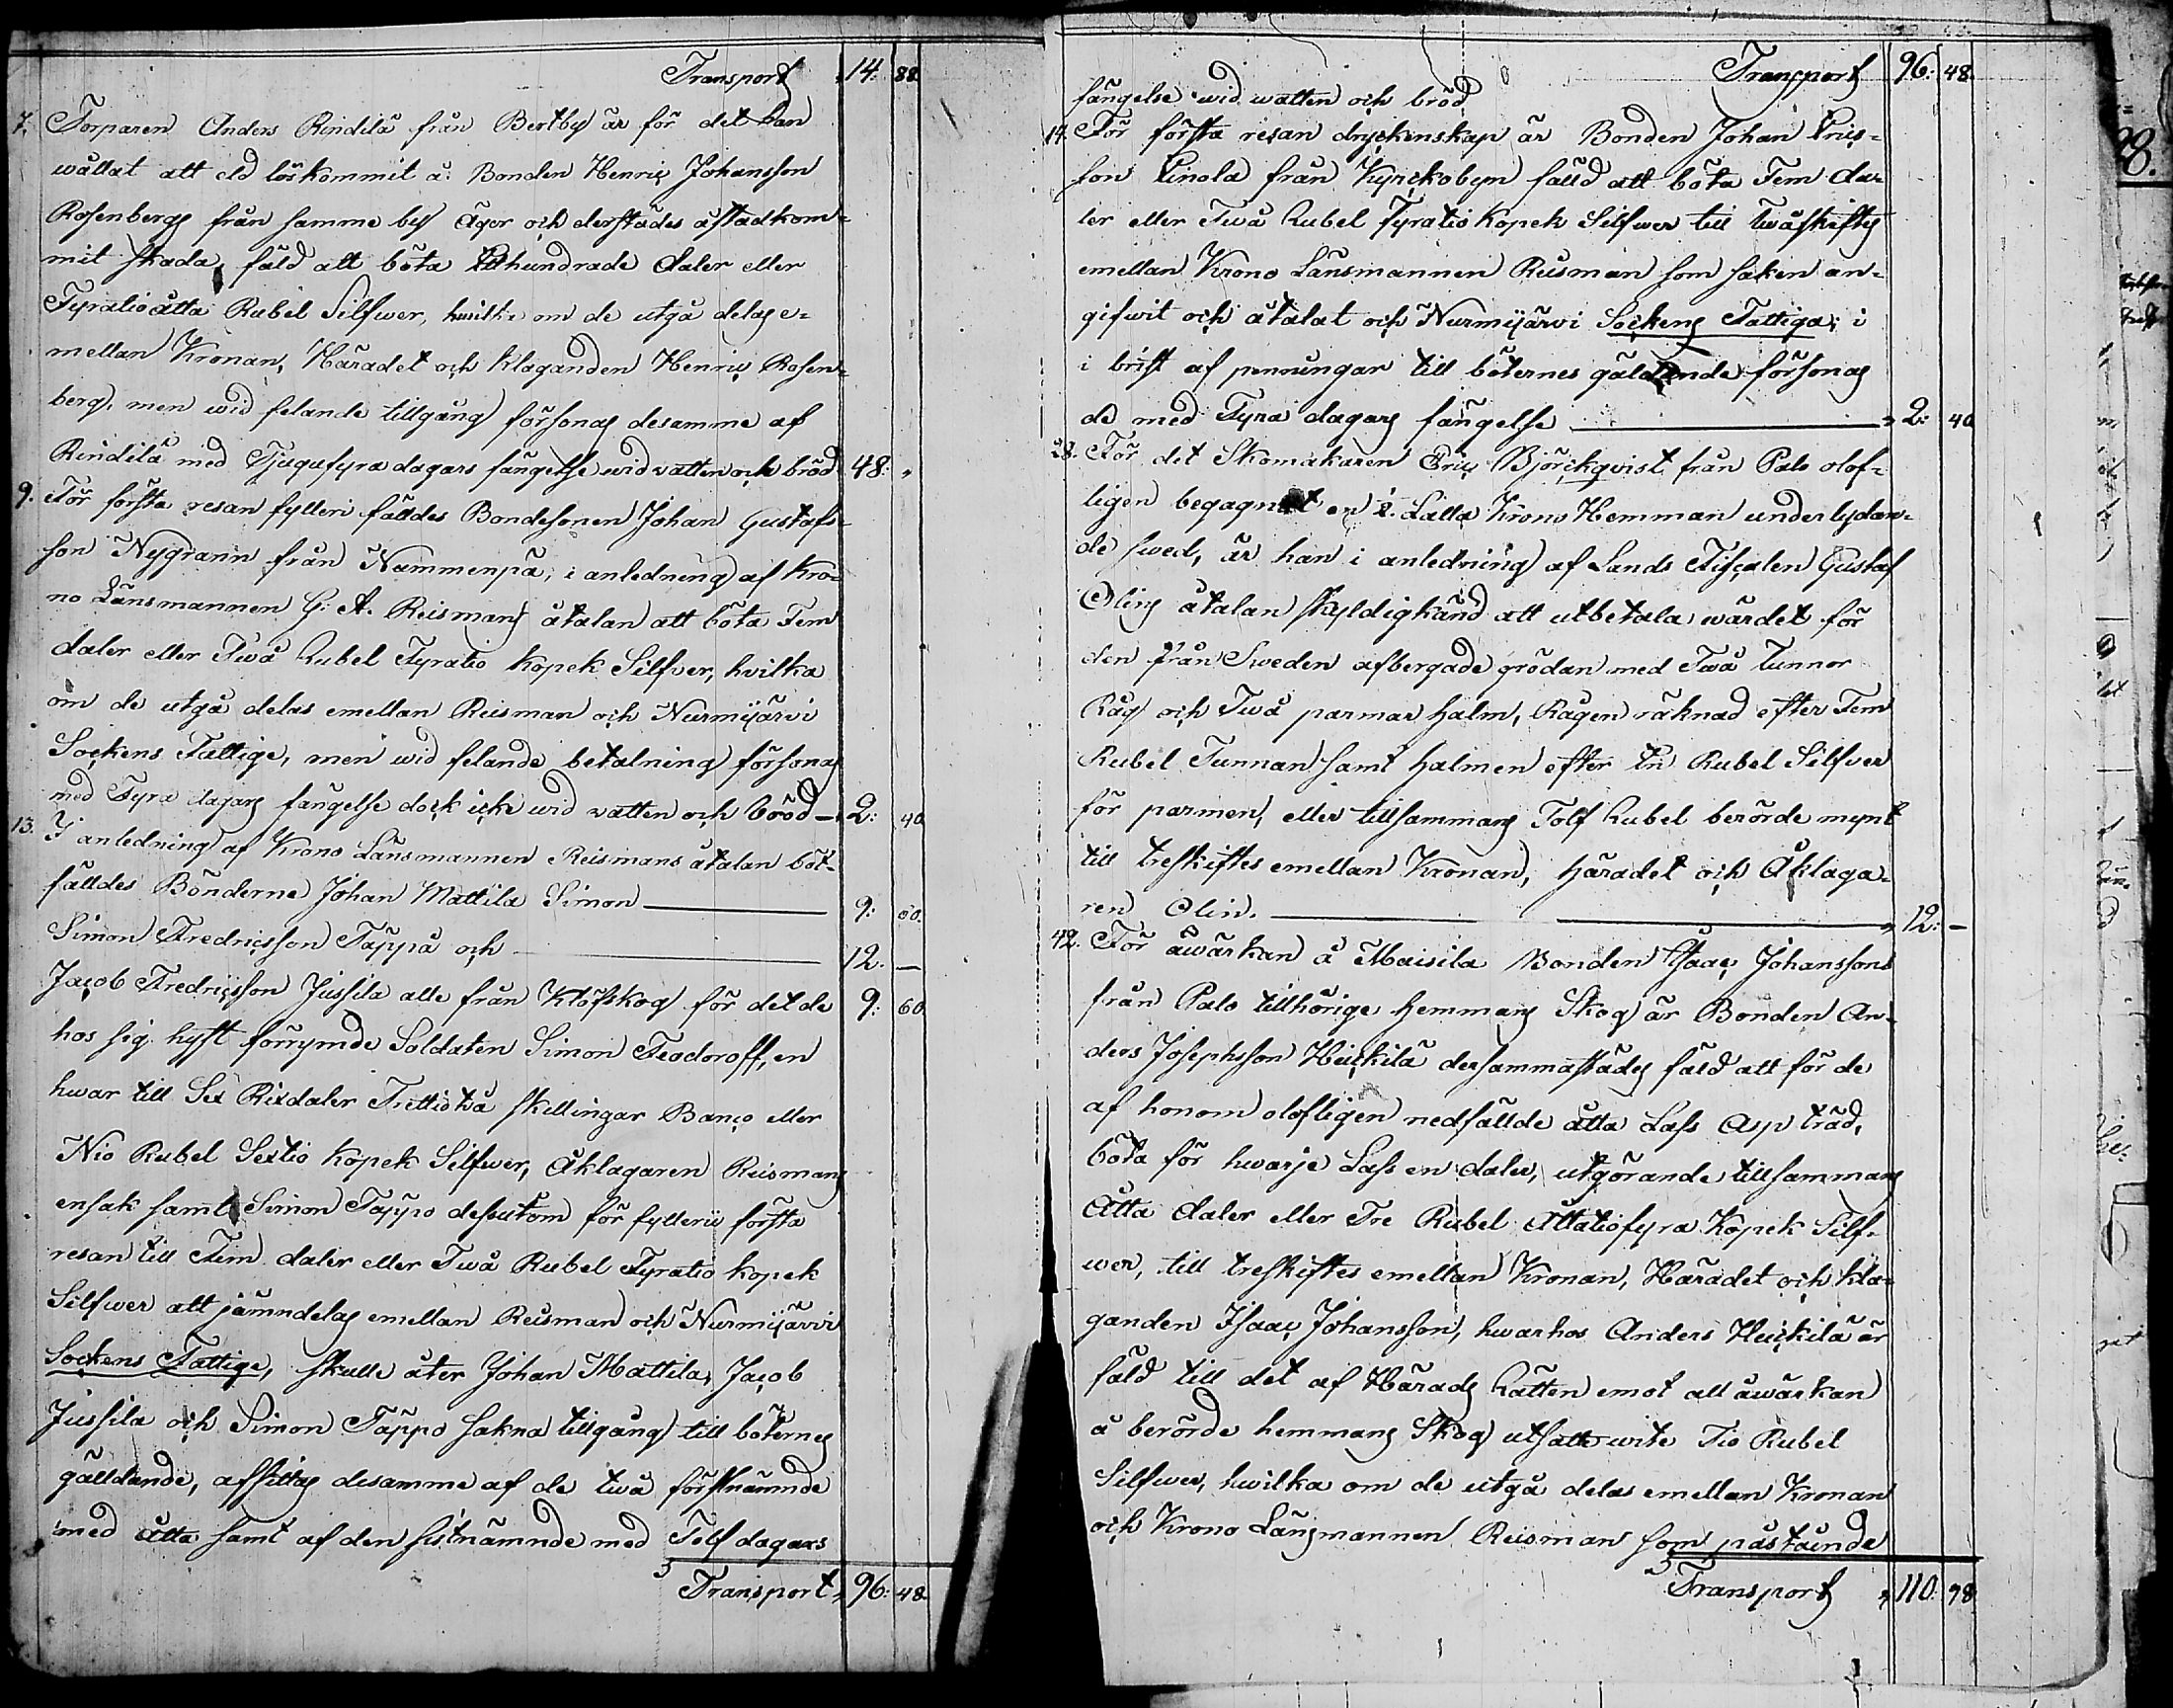 Transport 14. 88.
7. Torparen Anders Rindilä från Bertby är för det han
wållat att eld löskommit å Bonden Henric Johansson
Rosenbergs från samme by Ägor och derstädes åstadkom-
mit skada, fäld att böta Etthundrade daler eller
Fyratioåtta Rubel Silfwer, hwilka om de utgå delas e-
mellan Kronan, Häradet och klaganden Henric Rosen-
berg, men wid felande tillgång försonas desamme af
Rindilä med Tjugufyra dagars fängelse wid vatten och bröd 48: "
9. För första resan fylleri fälldes Bondesonen Johan Gustafs-
son Nygrann från Nummenpä, i anledning af Kro-
no Länsmannen G. A. Reismans åtalan att böta Fem
daler eller Twå Rubel Fyratio kopek Silfver, hvilka
om de utgå delas emellan Reisman och Nurmijärvi
Sockens Fattige, men wid felande betalning försonas
med Fyra dagars fängelse dock icke wid vatten och bröd — 2: 40.
13. I anledning af Krono Länsmannen Reismans åtalan böt-
fälldes Bönderne Johan Mattila Simon — 9: 60.
Simon Fredricsson Täppä och — 12. —
Jacob Fredricsson Jussila alle från Klöfskog för det de 9: 60.
hos sig hyst förrymde Soldaten Simon Feodoroff, en
hwar till Sex Rixdaler Trettiotvå skillingar Banco eller
Nio Rubel Sextio Kopek Silfwer, Åklagaren Reismans
ensak samt Simon Täppo dessutom för fylleri första
resan till Fem daler eller Twå Rubel Fyratio kopek
Silfwer att jämndelas emellan Reisman och Nurmijärvi
Sockens Fattige, skulle åter Johan Mattila, Jacob
Jussila och Simon Täppo sakna tillgång till böternes
gäldande, afsittas desamme af de twå förstnämnde
med åtta samt af den sistnämnde med Tolf dagars
Transport 96: 48.
Transport 96: 48.
fängelse wid watten och bröd
14. För första resan dryckenskap är Bonden Johan Erics-
son Einola från Kyrckobyn fälld att böta Fem da-
ler eller Twå Rubel Fyratio Kopek Silfwer till twåskiftes
emellan Krono Länsmannen Reisman som saken an-
gifwit och åtalat och Nurmijärvi Sockens Fattiga; i
i brist af penningar till böternes gäldande försonas
de med Fyra dagars fängelse — 2: 40
28. För det Skomakaren Eric Björckqvist från Palo olof-
ligen begagnat en i Lalla Krono Hemman underlydan-
de swed, är han i anledning af Lands Fiscalen Gustaf
Olins åtalan skyldigkänd att utbetala wärdet för
den från Sweden afbergade grödan med Twå Tunnor
Råg och Twå parmar halm, Rågen räknad efter Fem
Rubel Tunnan samt halmen efter En Rubel Silfver
för parmen, eller tillsammans Tolf Rubel berörde mynt
till treskiftes emellan Kronan, häradet och Åklaga-
ren Olin. — 12: —
42. För åwärkan å Maisila Bonden Isaac Johanssons
från Palo tillhörige hemmans Skog är Bonden An-
ders Josephsson Heickilä dersammastädes fäld att för de
af honom olofligen nedfällde åtta Lass Asp träd,
böta för hwarje Lass en daler, utgörande tillsammans
Åtta daler eller Tre Rubel Åttatiofyra Kopek Silf-
wer, till treskiftes emellan Kronan, Häradet och kla-
ganden Isaac Johansson, hwarhos Anders Heickilä är
fäld till det af Härads Rätten emot all åwärkan
å berörde hemmans Skog utsatte wite Tio Rubel
Silfwer, hwilka om de utgå delas emellan Kronan
och Krono Länsmannen Reisman som påstående
Transport 110. 98.